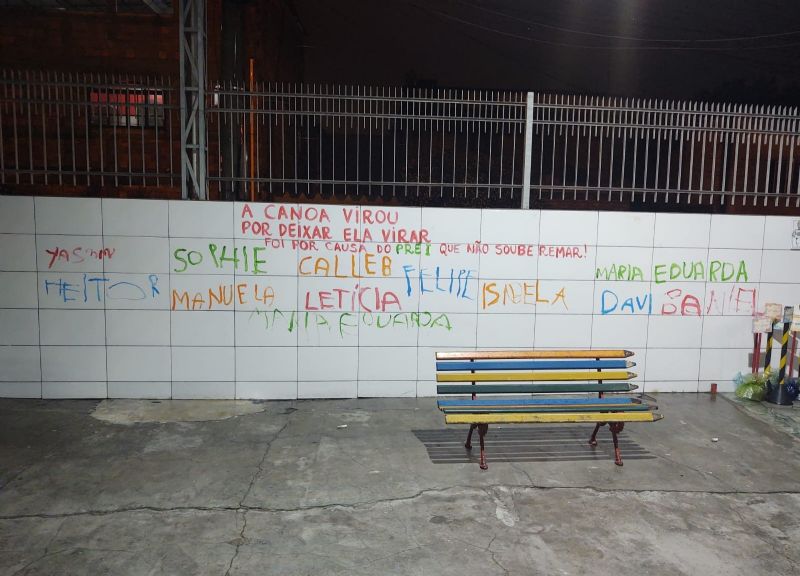 A CANOA VIROU
POR DEIXAR ELA VIRAR
FOI POR CAUSA DO PRÉ I QUE NÃO SOUBE REMAR!
YASMIN SOPHIE CALLEB FELIPE MARIA EDUARDA
HEITOR MANUELA LETÍCIA ISABELA DAVI
MARIA EDUARDA